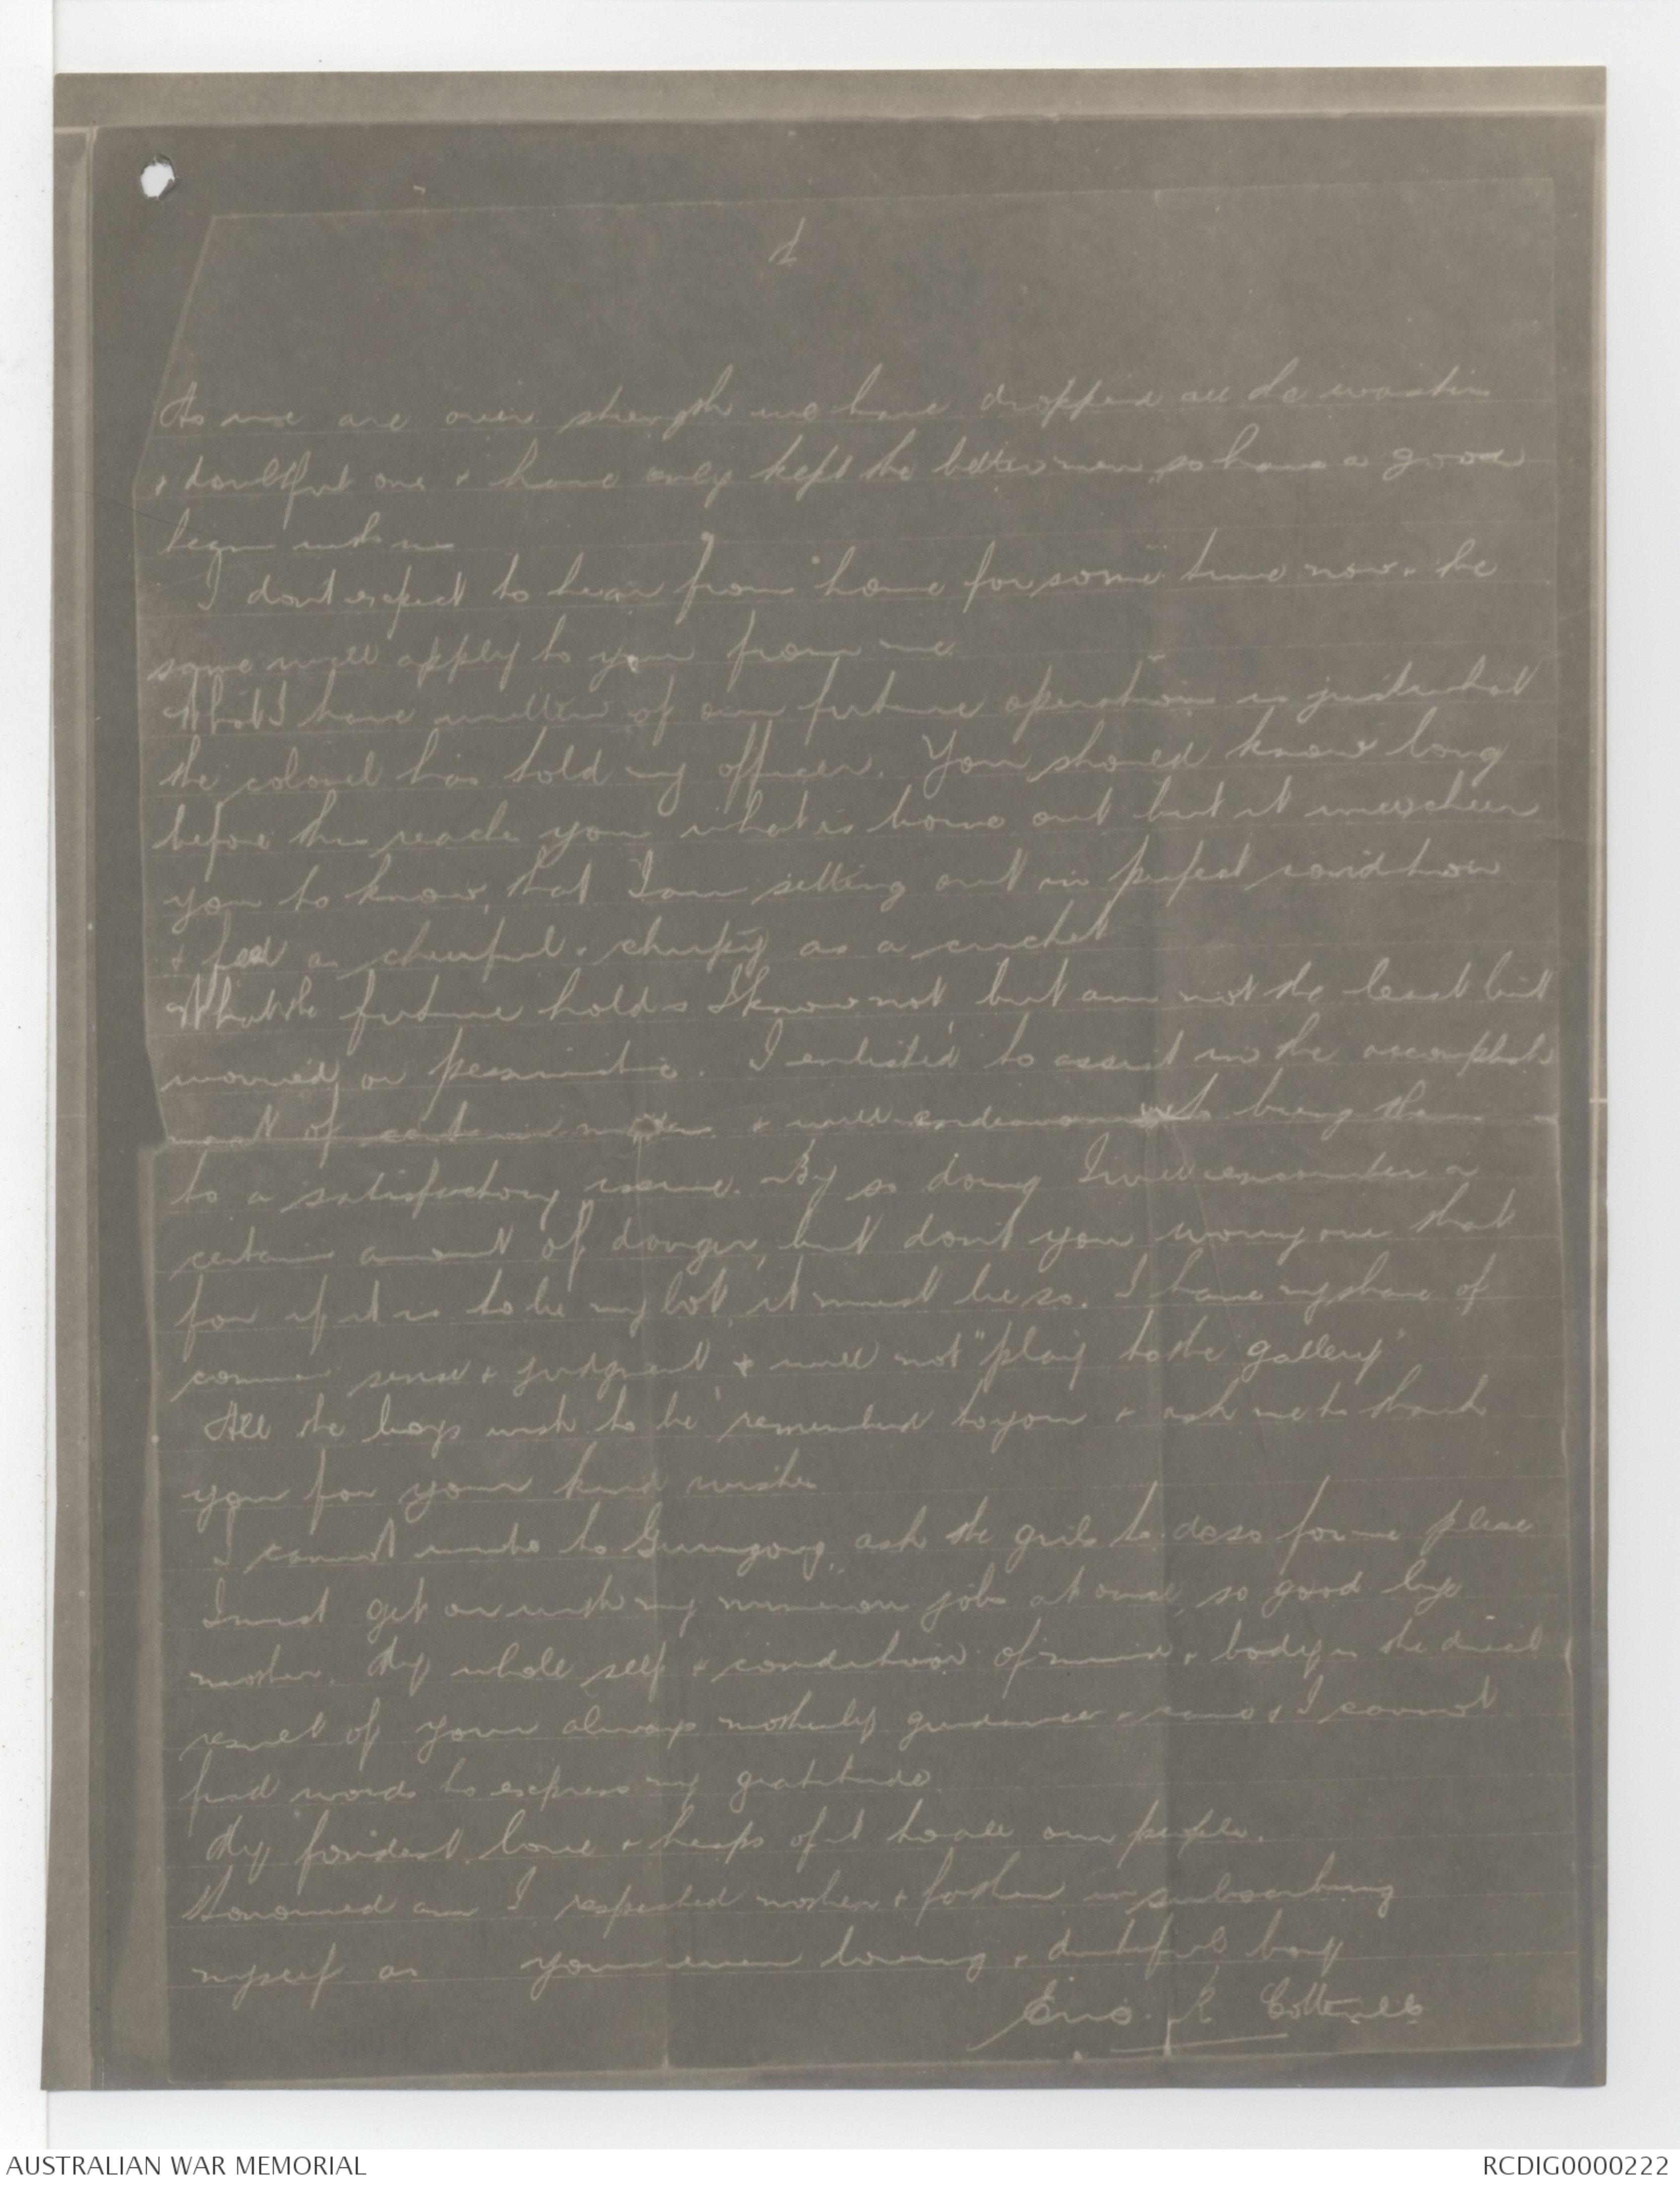 4
As we are over strength we have dropped all the wasters
& doubtful one & have only kept the better men, so have a good
team with me
I dont expect to hear from home for some time now & the
same will apply to you from me
What I have written of our future operations is just what
the colonel has told my officer. You should know long
before this reache you what is borne out but it will cheer
you to know, that I am setting out in perfect condition
& feel as cheerful & chirpy as a cricket
What the future holds I know not but am not the least bit
worried or pessimistic. I enlisted to assist in the accomplish
ment of certain & will endeavour to bring them
to a satisfactory issue. By so doing I will encounter a
certain amount of danger, but dont you worry over that
for if it is to be my lot, it must be so. I have my share of
common sense & judgment & will not "play to the gallery"
All the boys wish to be remembered to you & ask me to thank
you for your kind wishes
I cannot write to Gerringong, ask the girls to do so for me please
I must get on with my numerous jobs at once, so good bye
mother. My whole self & condition of mind & body is the direct
result of your always motherly guidance & care & I cannot
find words to express my gratitude.
My fondest love & heaps of it to all our people.
Honoured am I respected mother & father in subscribing
myself as your ever loving & dutiful boy
Eno. R Cotterell
AUSTRALIAN WAR MEMORIAL
RCDIG0000222